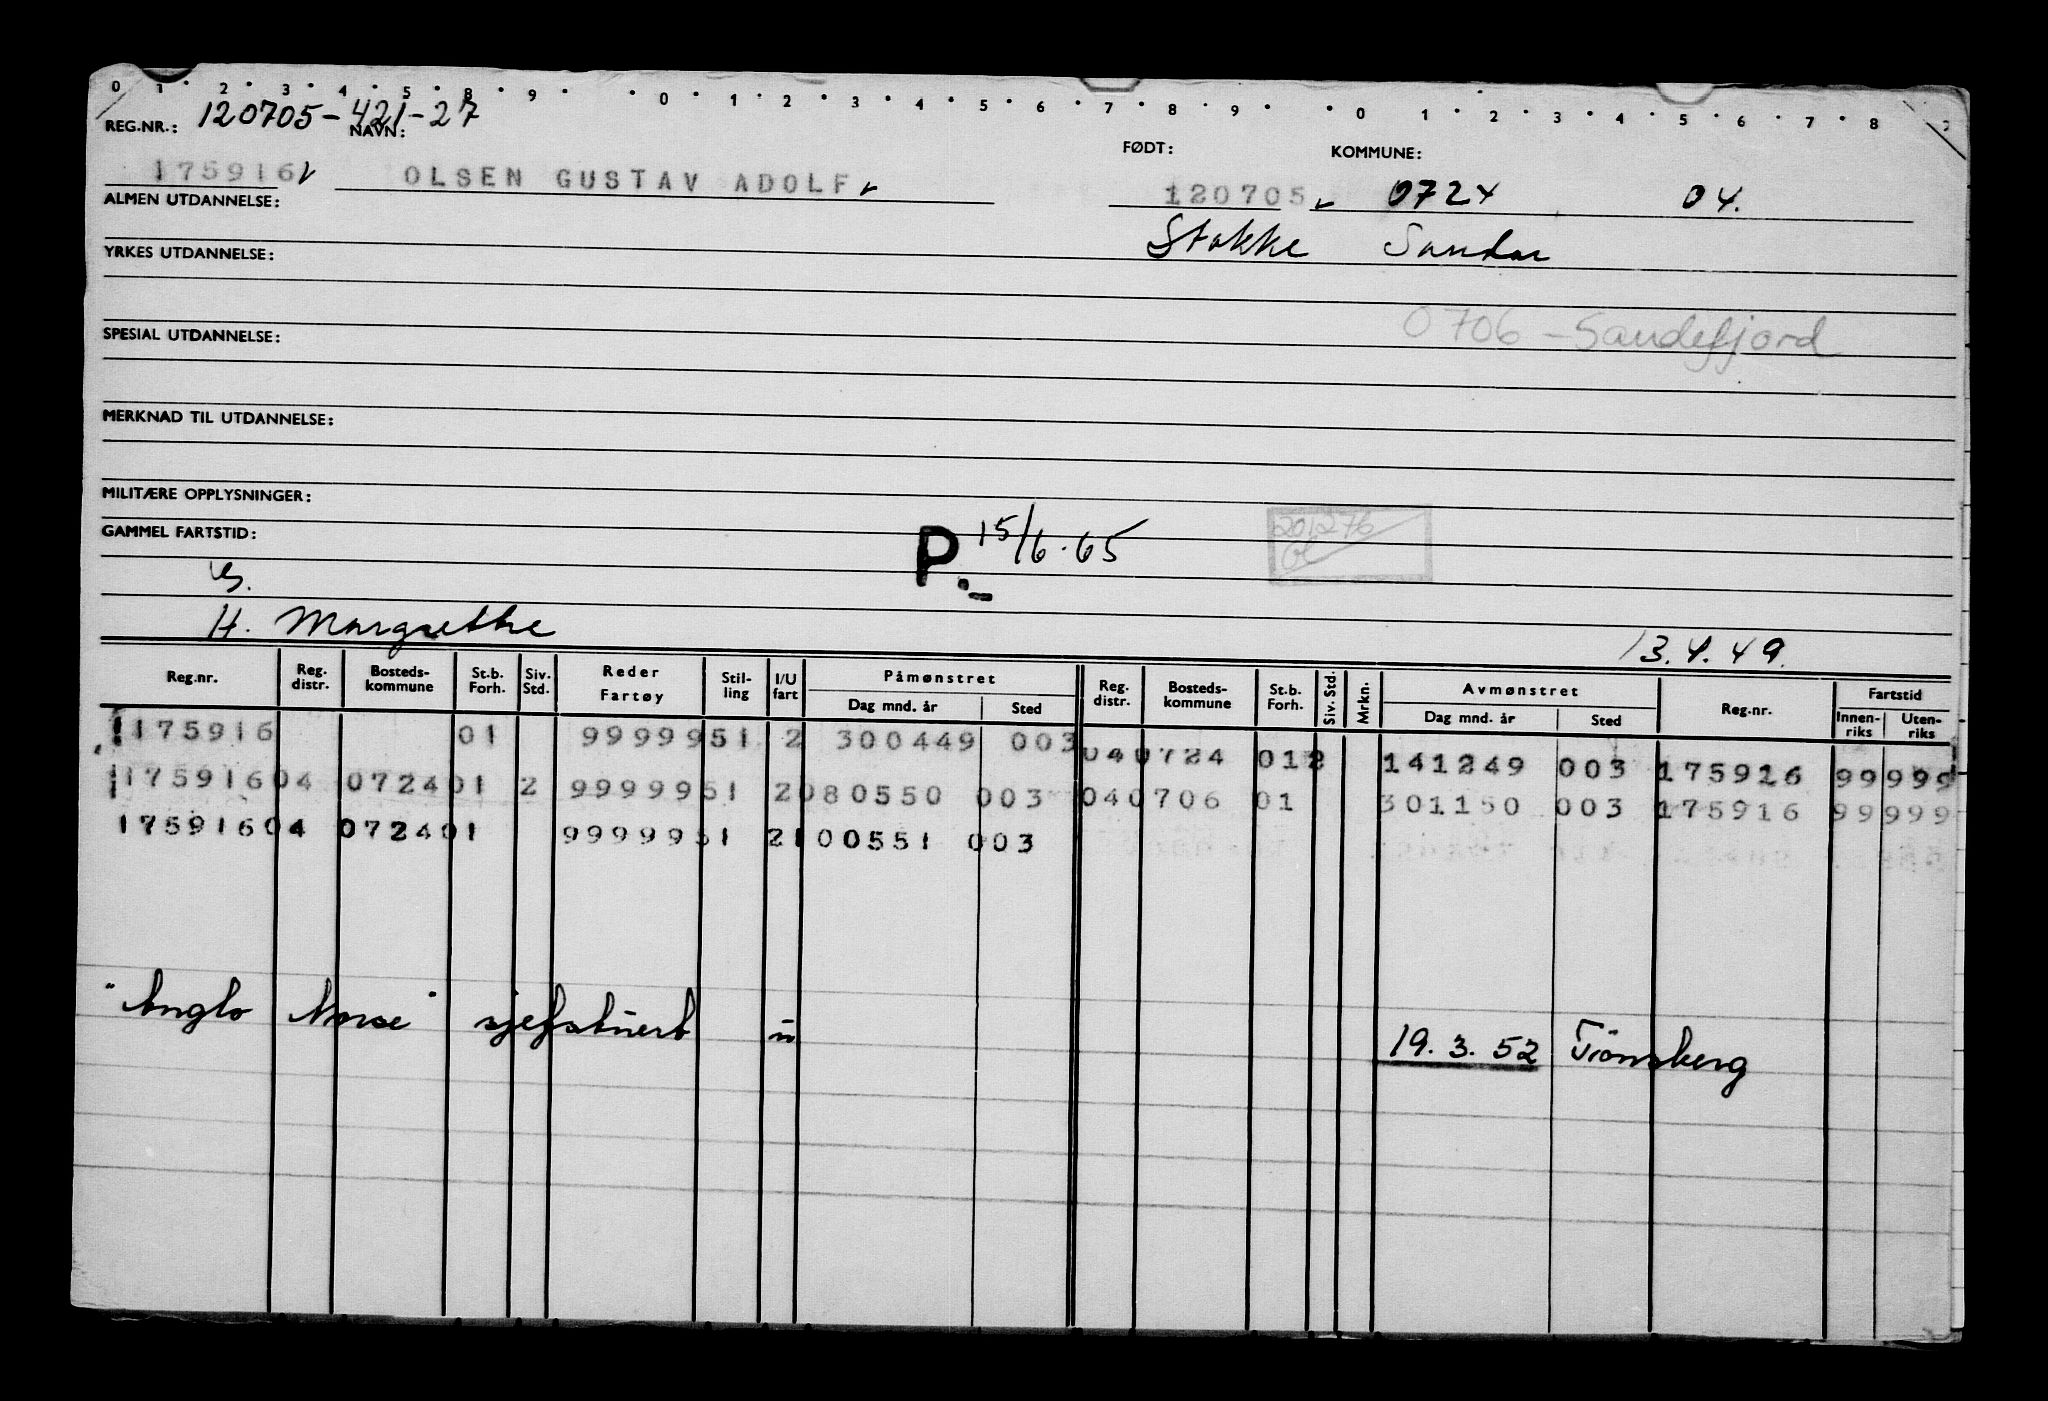 0 1 2 3 4 5 8 9 0 1 2 3 4 5 6 7 8 9 0 1 2 3 4 5 6 7 8
REG.NR.: 120705-421-27 NAVN: FØDT: KOMMUNE:
175916 OLSEN GUSTAV ADOLF 120705 0724 04.
ALMEN UTDANNELSE: Stokke Sandar
YRKES UTDANNELSE:
0706 - Sandefjord
SPESIAL UTDANNELSE:
MERKNAD TIL UTDANNELSE:
MILITÆRE OPPLYSNINGER:
GAMMEL FARTSTID: P. 15/6.65 201276
H. Margrethe 13.4.49.
Reg.nr. Reg. distr. Bosteds-kommune St.b. Forh. Siv. Std. Reder Fartøy Stil-ling I/U fart Påmønstret Dag mnd. år Sted Reg. distr. Bosteds-kommune St.b. Forh. Siv. Std. Mrkn. Avmønstret Dag mnd. år Sted Reg.nr. Fartstid Innen-riks Uten-riks
175916 01 9999951 2 300449 003 040724 012 141249 003 175916 99999
17591604 072401 2 9999951 2080550 003 040706 01 301150 003 175916 99999
17591604 072401 9999951 2100551 003
"Anglo Norse" sjefstuert u 19.3.52 Tönsberg